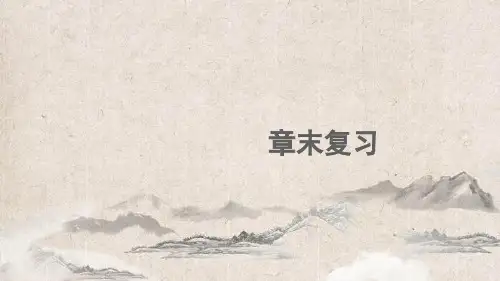 章末复习